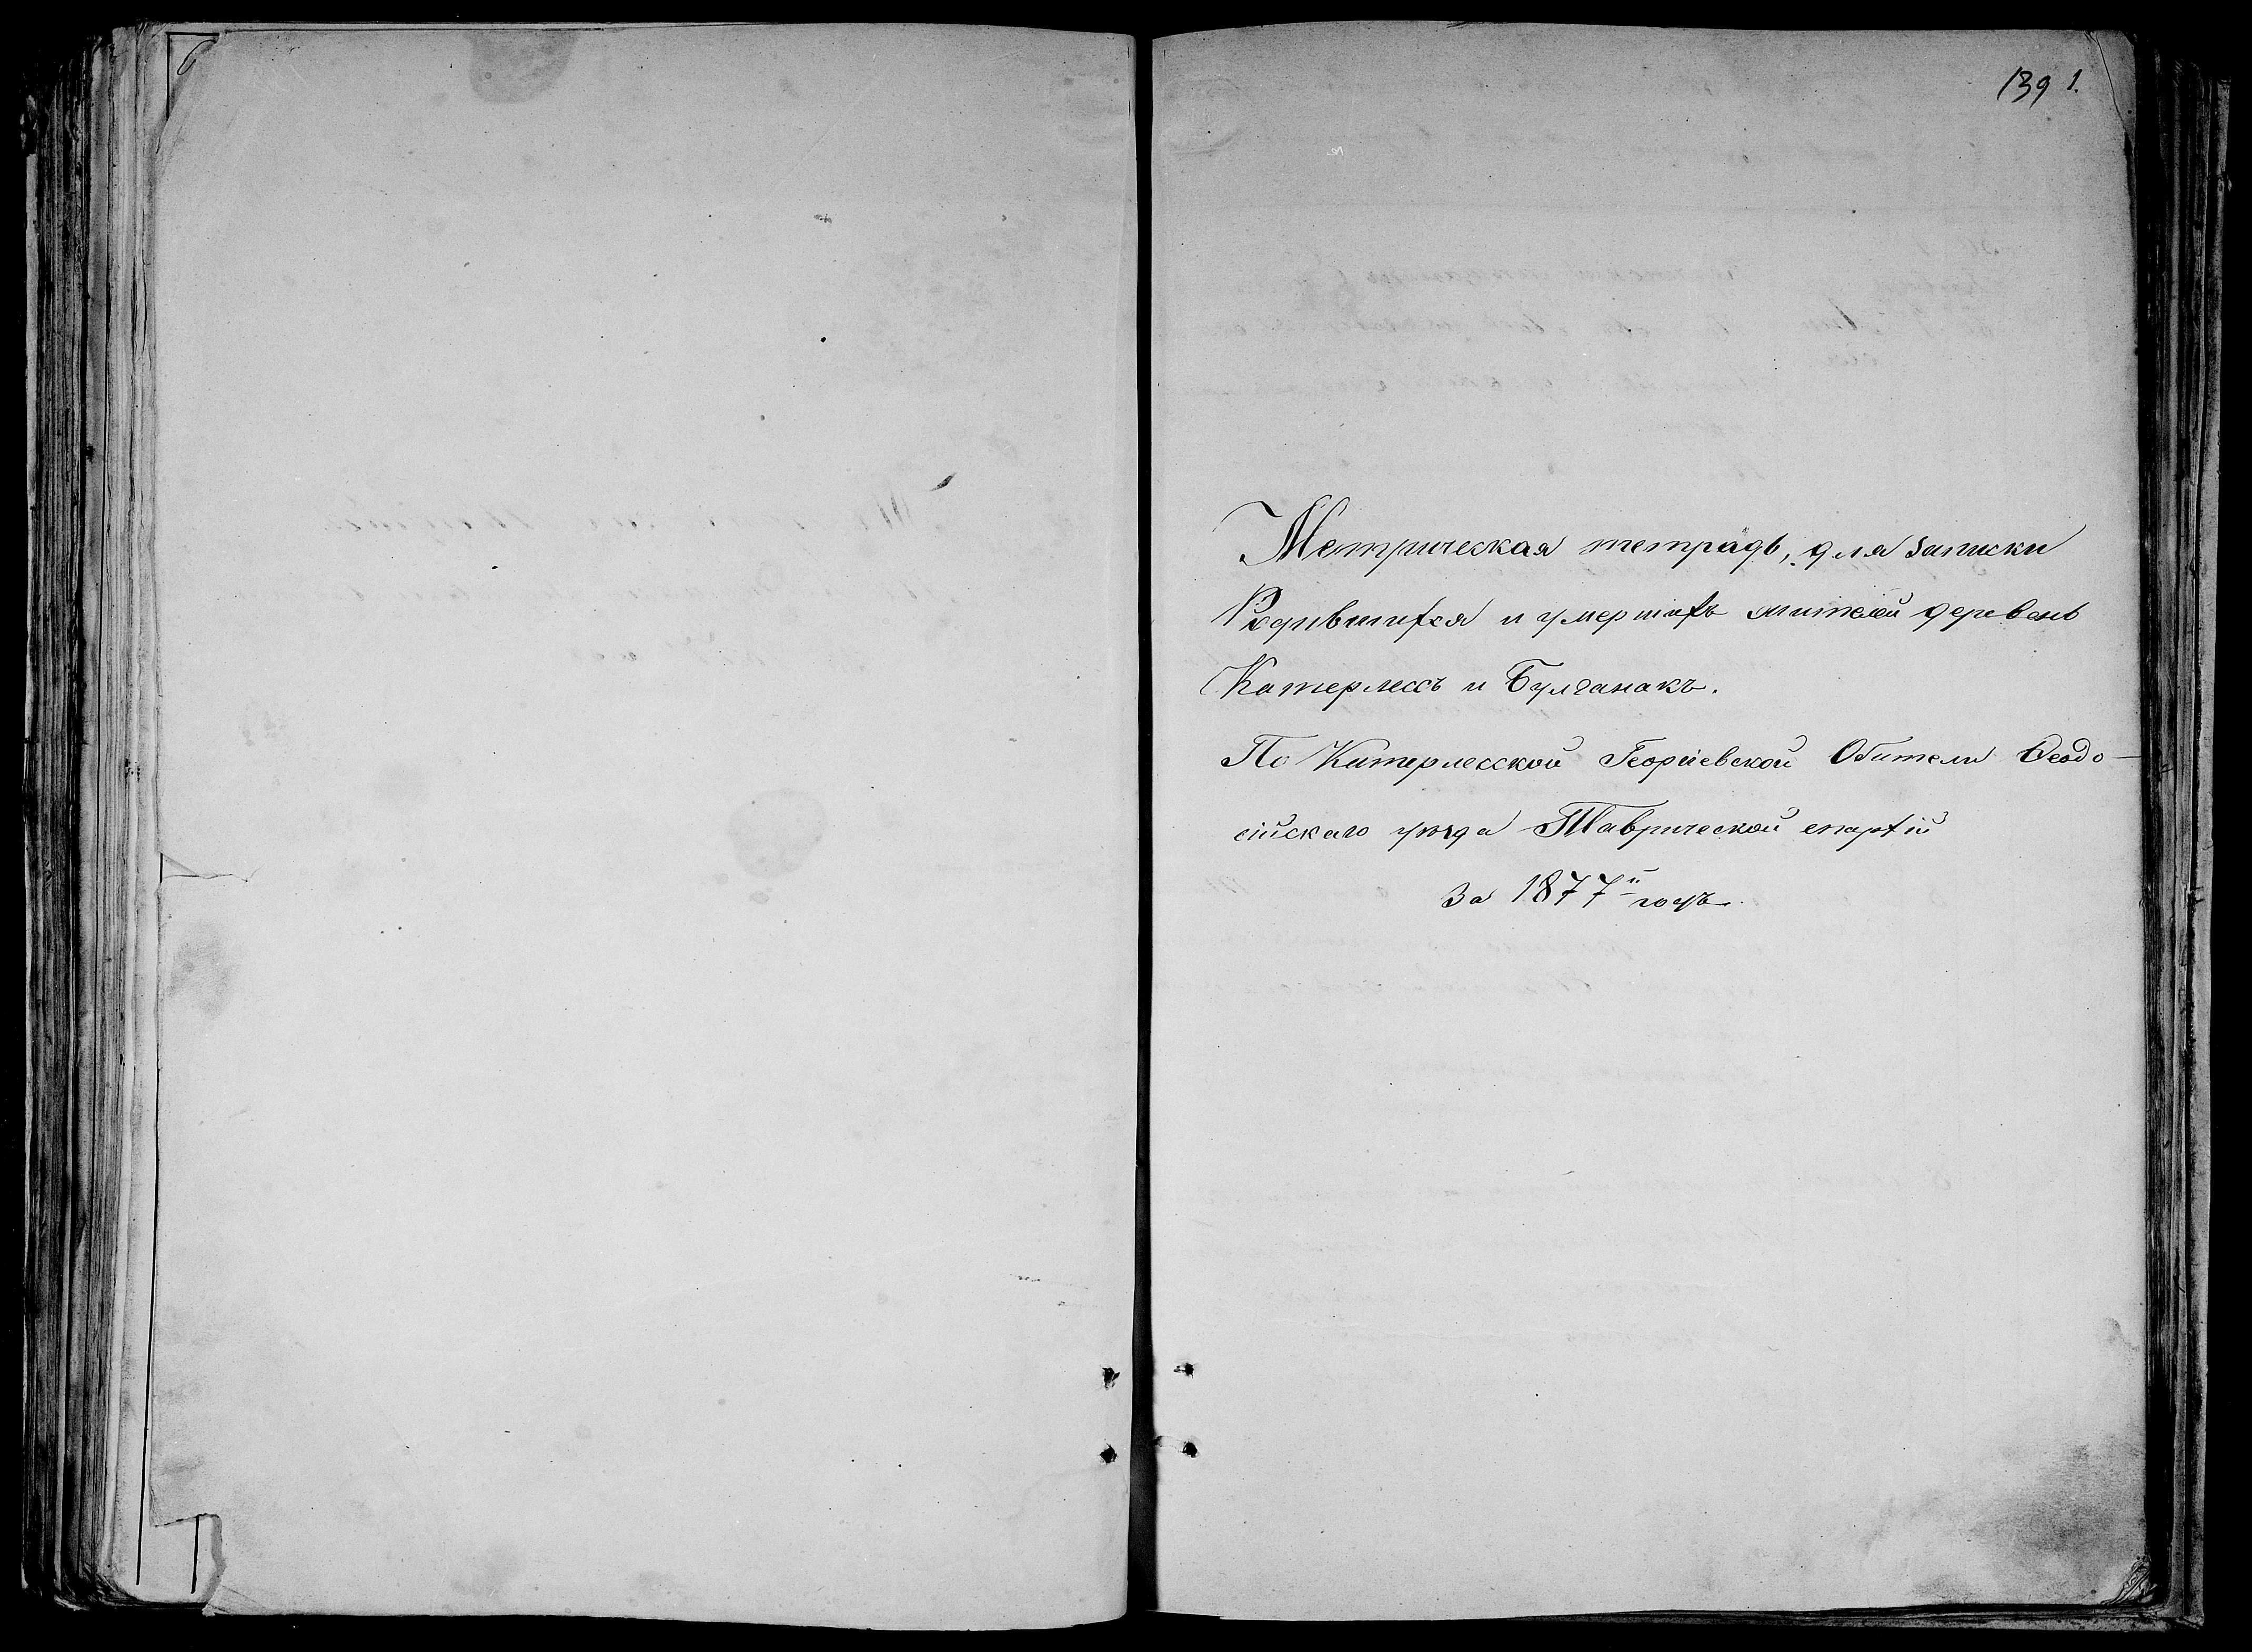 139 1.
Метрическая тетрадь, для записки
Родившихся и умершихъ жителей деревень
Катерлессъ и Булганакъ.
По Катерлесской Георгіевской Обители Ѳеодо-
сійскаго уѣзда Таврической епархіи
За 1877й годъ.